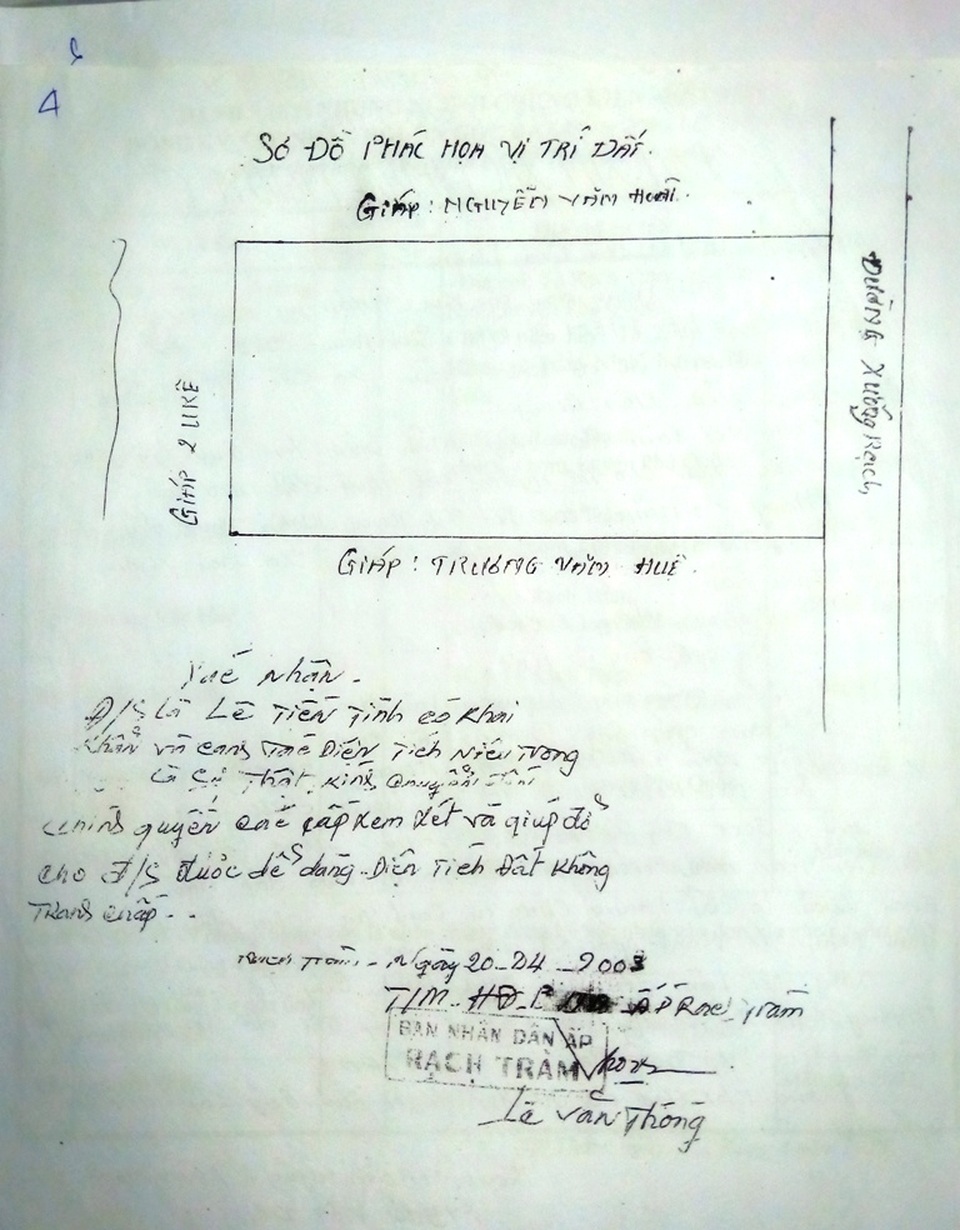 4
SƠ ĐỒ PHÁC HỌA VỊ TRÍ ĐẤT.
Giáp: NGUYỄN VĂN
ĐƯỜNG Xuống Rạch,
Giáp 2 LIKÊ
Giáp: TRƯƠNG VĂN HUỆ.
Xác nhận.
Đ/S Là Lê Tiến Tình có Khai
Khẩn và canh Tác Diện Tích Nêu Trong
Là Sự Thật, kính chuyển đến
chính quyền các cấp xem xét và giúp đở
cho đ/s được dể dàng. Diện Tích Đất Không
Tranh chấp..
Rạch Tràm - Ngày 20-04-2003
T/M ẤP Rạch Tràm
BAN NHÂN DÂN ẤP
RẠCH TRÀM
Lê Văn Thông